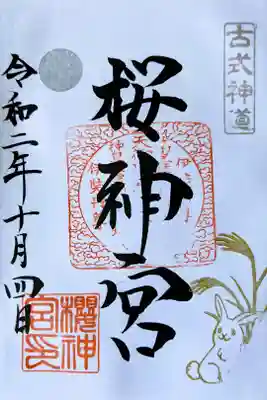 古式神道
桜神宮
令和二年十月四日
櫻神
宮印